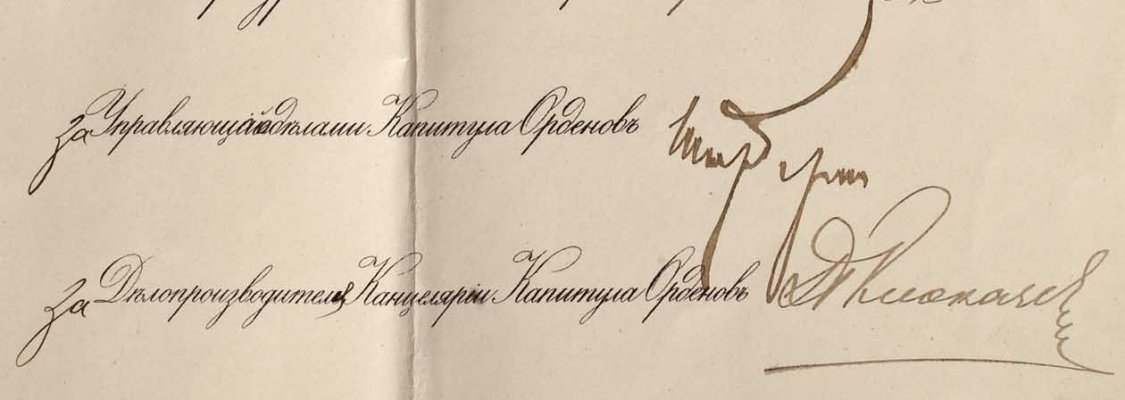 за Управляющаго дѣлами Капитула Орденовъ
за Дѣлопроизводителя Канцеляріи Капитула Орденовъ